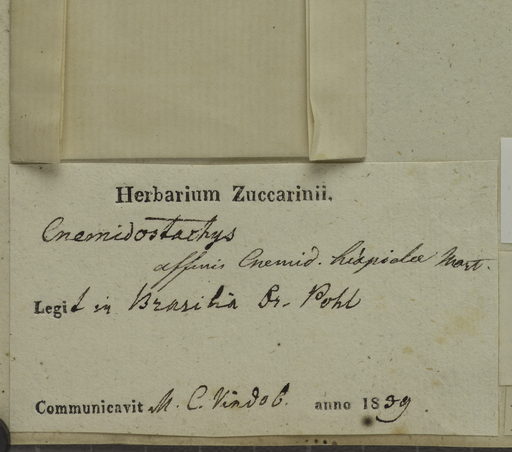 Herbarium Zuccarinii.
Cnemidostachys
affinis Cnemid. hispida Mart.
Legit in Brasilia Dr. Pohl
Communicavit M. C. Vindob. anno 1839.